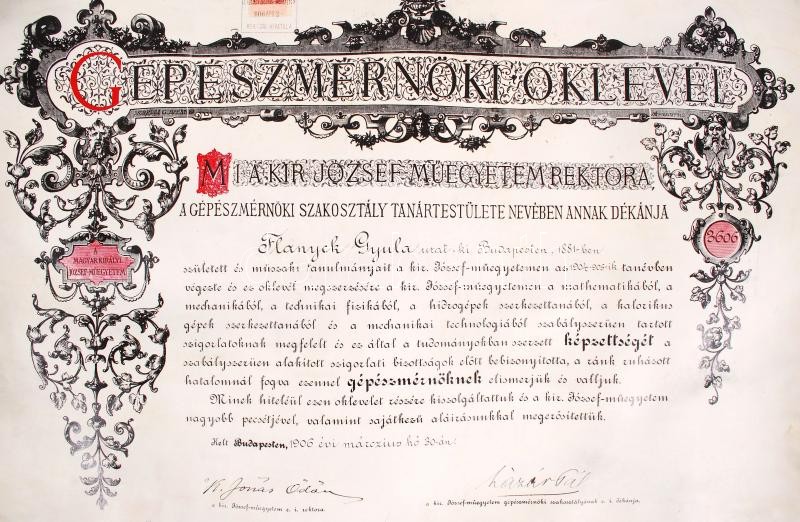 GÉPÉSZMÉRNÖKI OKLEVÉL
MI A KIR. JÓZSEF-MŰEGYETEM REKTORA,
A GÉPÉSZMÉRNÖKI SZAKOSZTÁLY TANÁRTESTÜLETE NEVÉBEN ANNAK DÉKÁNJA
Hanyek Gyula urat ki Budapesten, 1881-ben
született és műszaki tanulmányait a kir. József-műegyetemen az 1904-905-ik tanévben
végezte és ez oklevél megszerzésére a kir. József-műegyetemen a mathematikából, a
mechanikából, a technikai fizikából, a hidrogépek szerkezettanából, a kalorikus
gépek szerkezettanából és a mechanikai technologiából szabályszerüen tartott
szigorlatoknak megfelelt és ez által a tudományokban szerzett képzettségét a
szabályszerüen alakitott szigorlati bizottságok előtt bebizonyitotta, a ránk ruházott
hatalomnál fogva ezennel gépészmérnöknek elismerjük és valljuk.
Minek hiteléül ezen oklevelet részére kiszolgáltattuk és a kir. József-műegyetem
nagyobb pecsétjével, valamint sajátkezű aláirásunkkal megerősitettük.
Kelt Budapesten, 1906 évi márczius hó 30-án.
A
MAGYAR KIRÁLYI
JÓZSEF-MŰEGYETEM
3606
Jónás Ödön
a kir. József-műegyetem e. i. rektora.
Lázár Pál
a kir. József-műegyetem gépészmérnöki szakosztályának e. i. dékánja.